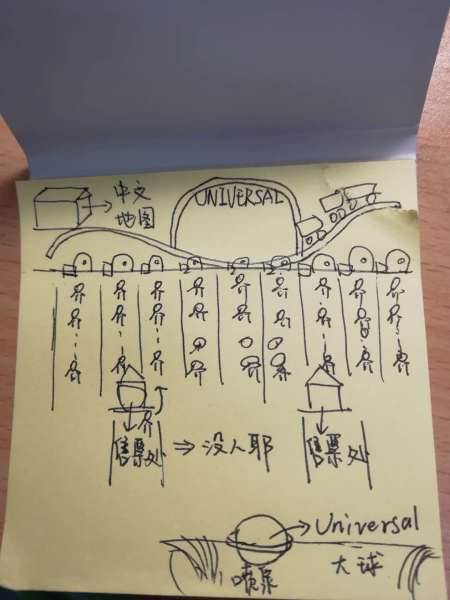 中文
地图
UNIVERSAL
售票处 ⇒ 没人耶
售票处
Universal
大球
喷泉